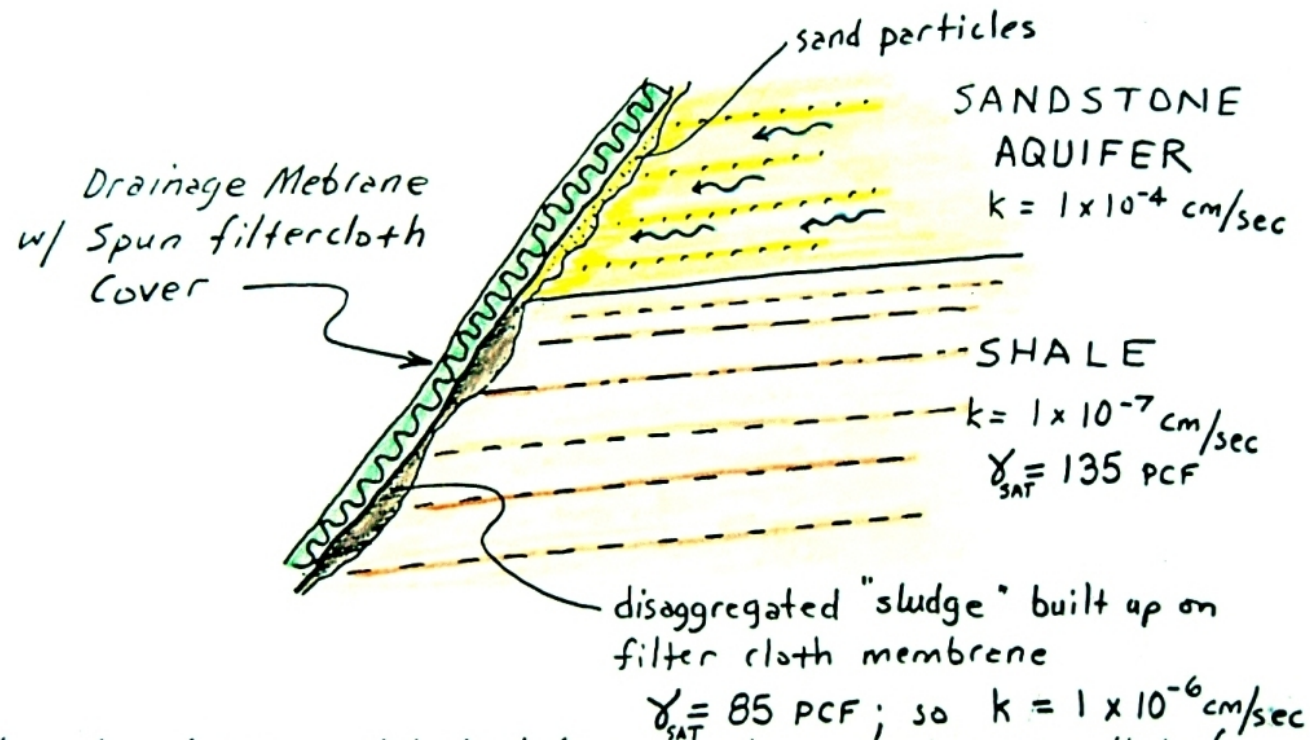 sand particles
SANDSTONE
AQUIFER
k = 1 x 10⁻⁴ cm/sec
Drainage Mebrane
w/ Spun filtercloth
Cover
SHALE
k = 1 x 10⁻⁷ cm/sec
γSAT = 135 PCF
disaggregated "sludge" built up on
filter cloth membrene
γSAT = 85 PCF ; so k = 1 x 10⁻⁶ cm/sec